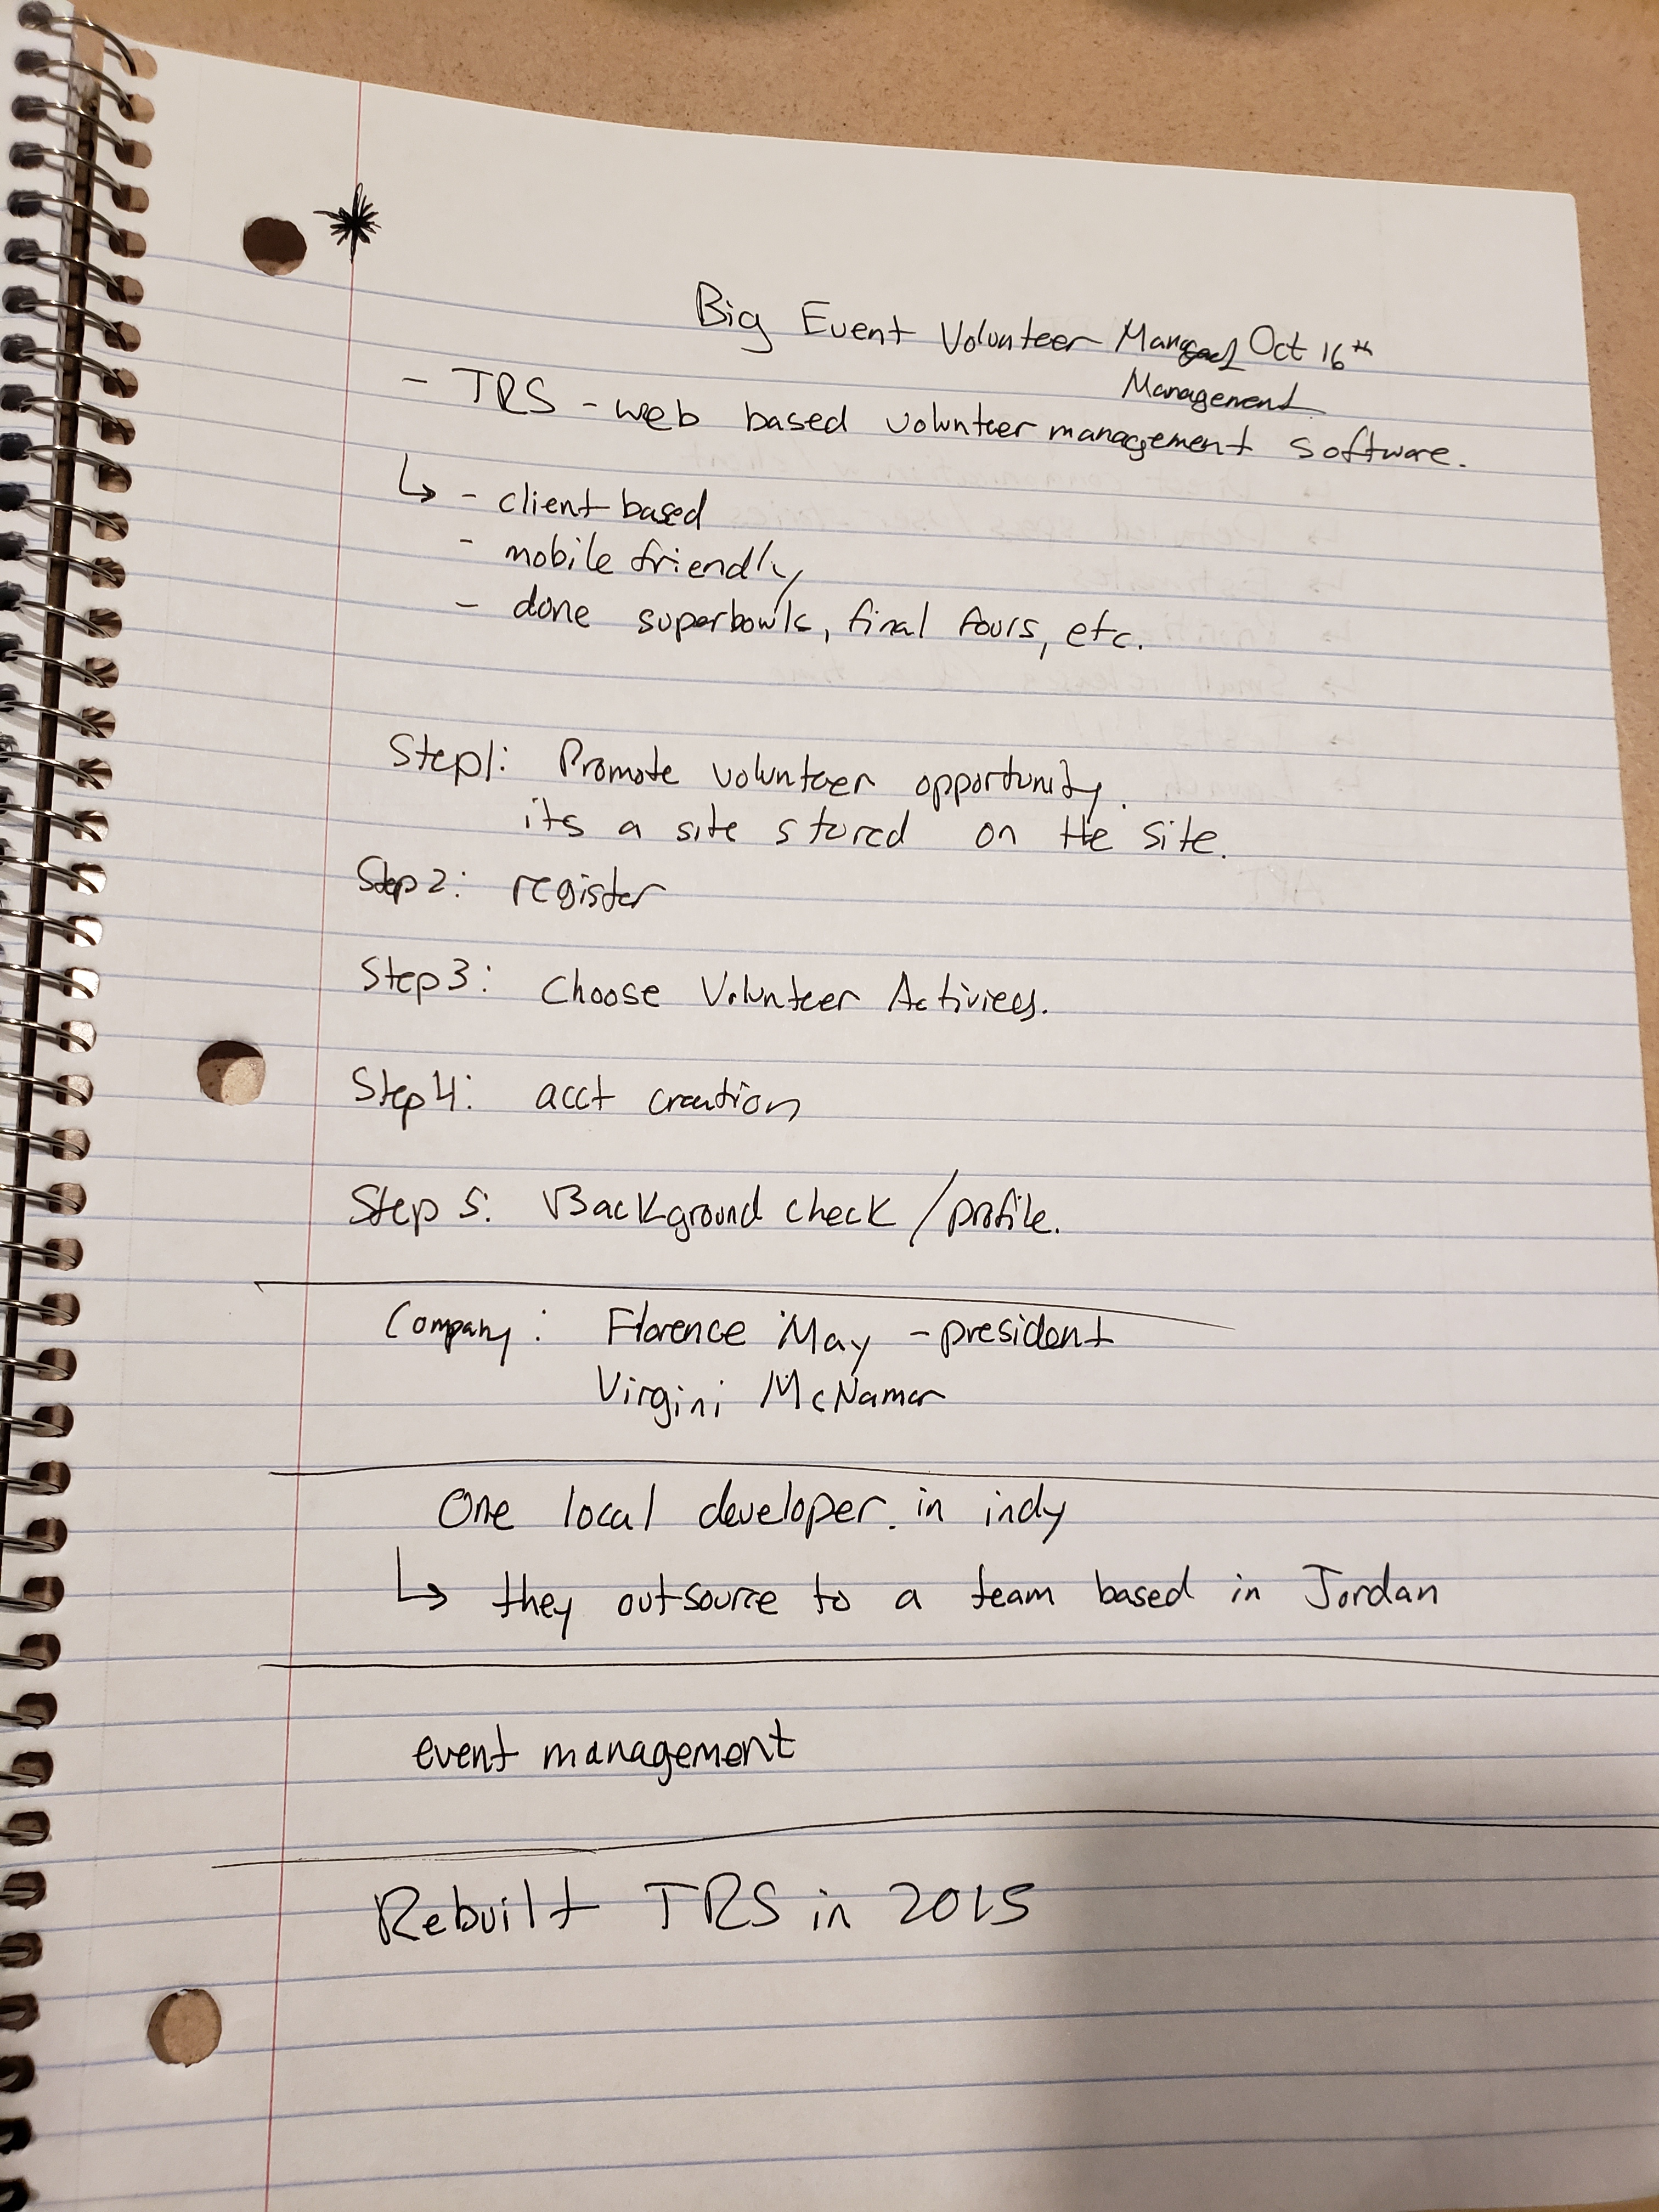 Big Event Volunteer Oct 16th
Management
- TRS - web based volunteer management software.
↳ - client based
- mobile friendly
- done superbowls, final fours, etc.
Step 1: Promote volunteer opportunity.
its a site stored on the site.
Step 2: register
Step 3: Choose Volunteer Activiees.
Step 4: acct creation
Step 5: Background check / profile.
Company: Florence May - president
Virgini McNamar
One local developer. in indy
↳ they outsource to a team based in Jordan
event management
Rebuilt TRS in 2015